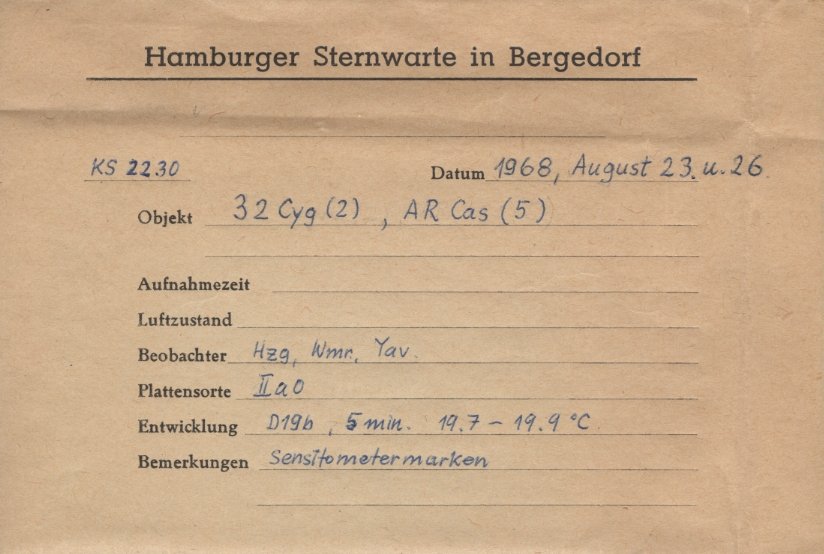 Hamburger Sternwarte in Bergedorf
KS 2230 Datum 1968, August 23. u. 26
Objekt 32 Cyg (2), AR Cas (5)
Aufnahmezeit
Luftzustand
Beobachter Hzg, Wmr, Yav.
Plattensorte IIa0
Entwicklung D19b, 5 min. 19.7 – 19.9 °C
Bemerkungen Sensitometermarken